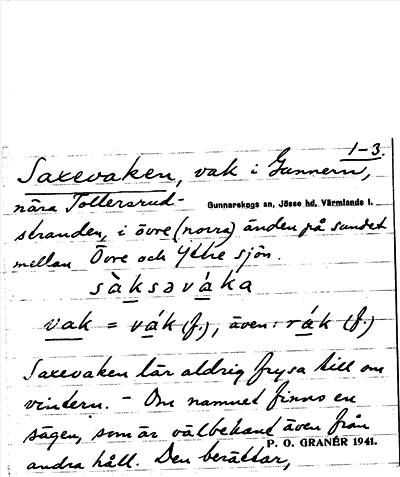 1-3.
Saxevaken, vak i Gunnern,
nära Tollersrud-
Gunnarskogs sn, Jösse hd, Värmlands l.
stranden, i övre (norra) änden på sundet
mellan Övre och Yttre sjön.
sàksəváka
vak = vák (f.), även: rák (f.)
Saxevaken lär aldrig frysa till om
vintern. - Om namnet finns en
sägen, som är välbekant även från
P. O. GRANÉR 1941.
andra håll. Den berättar,